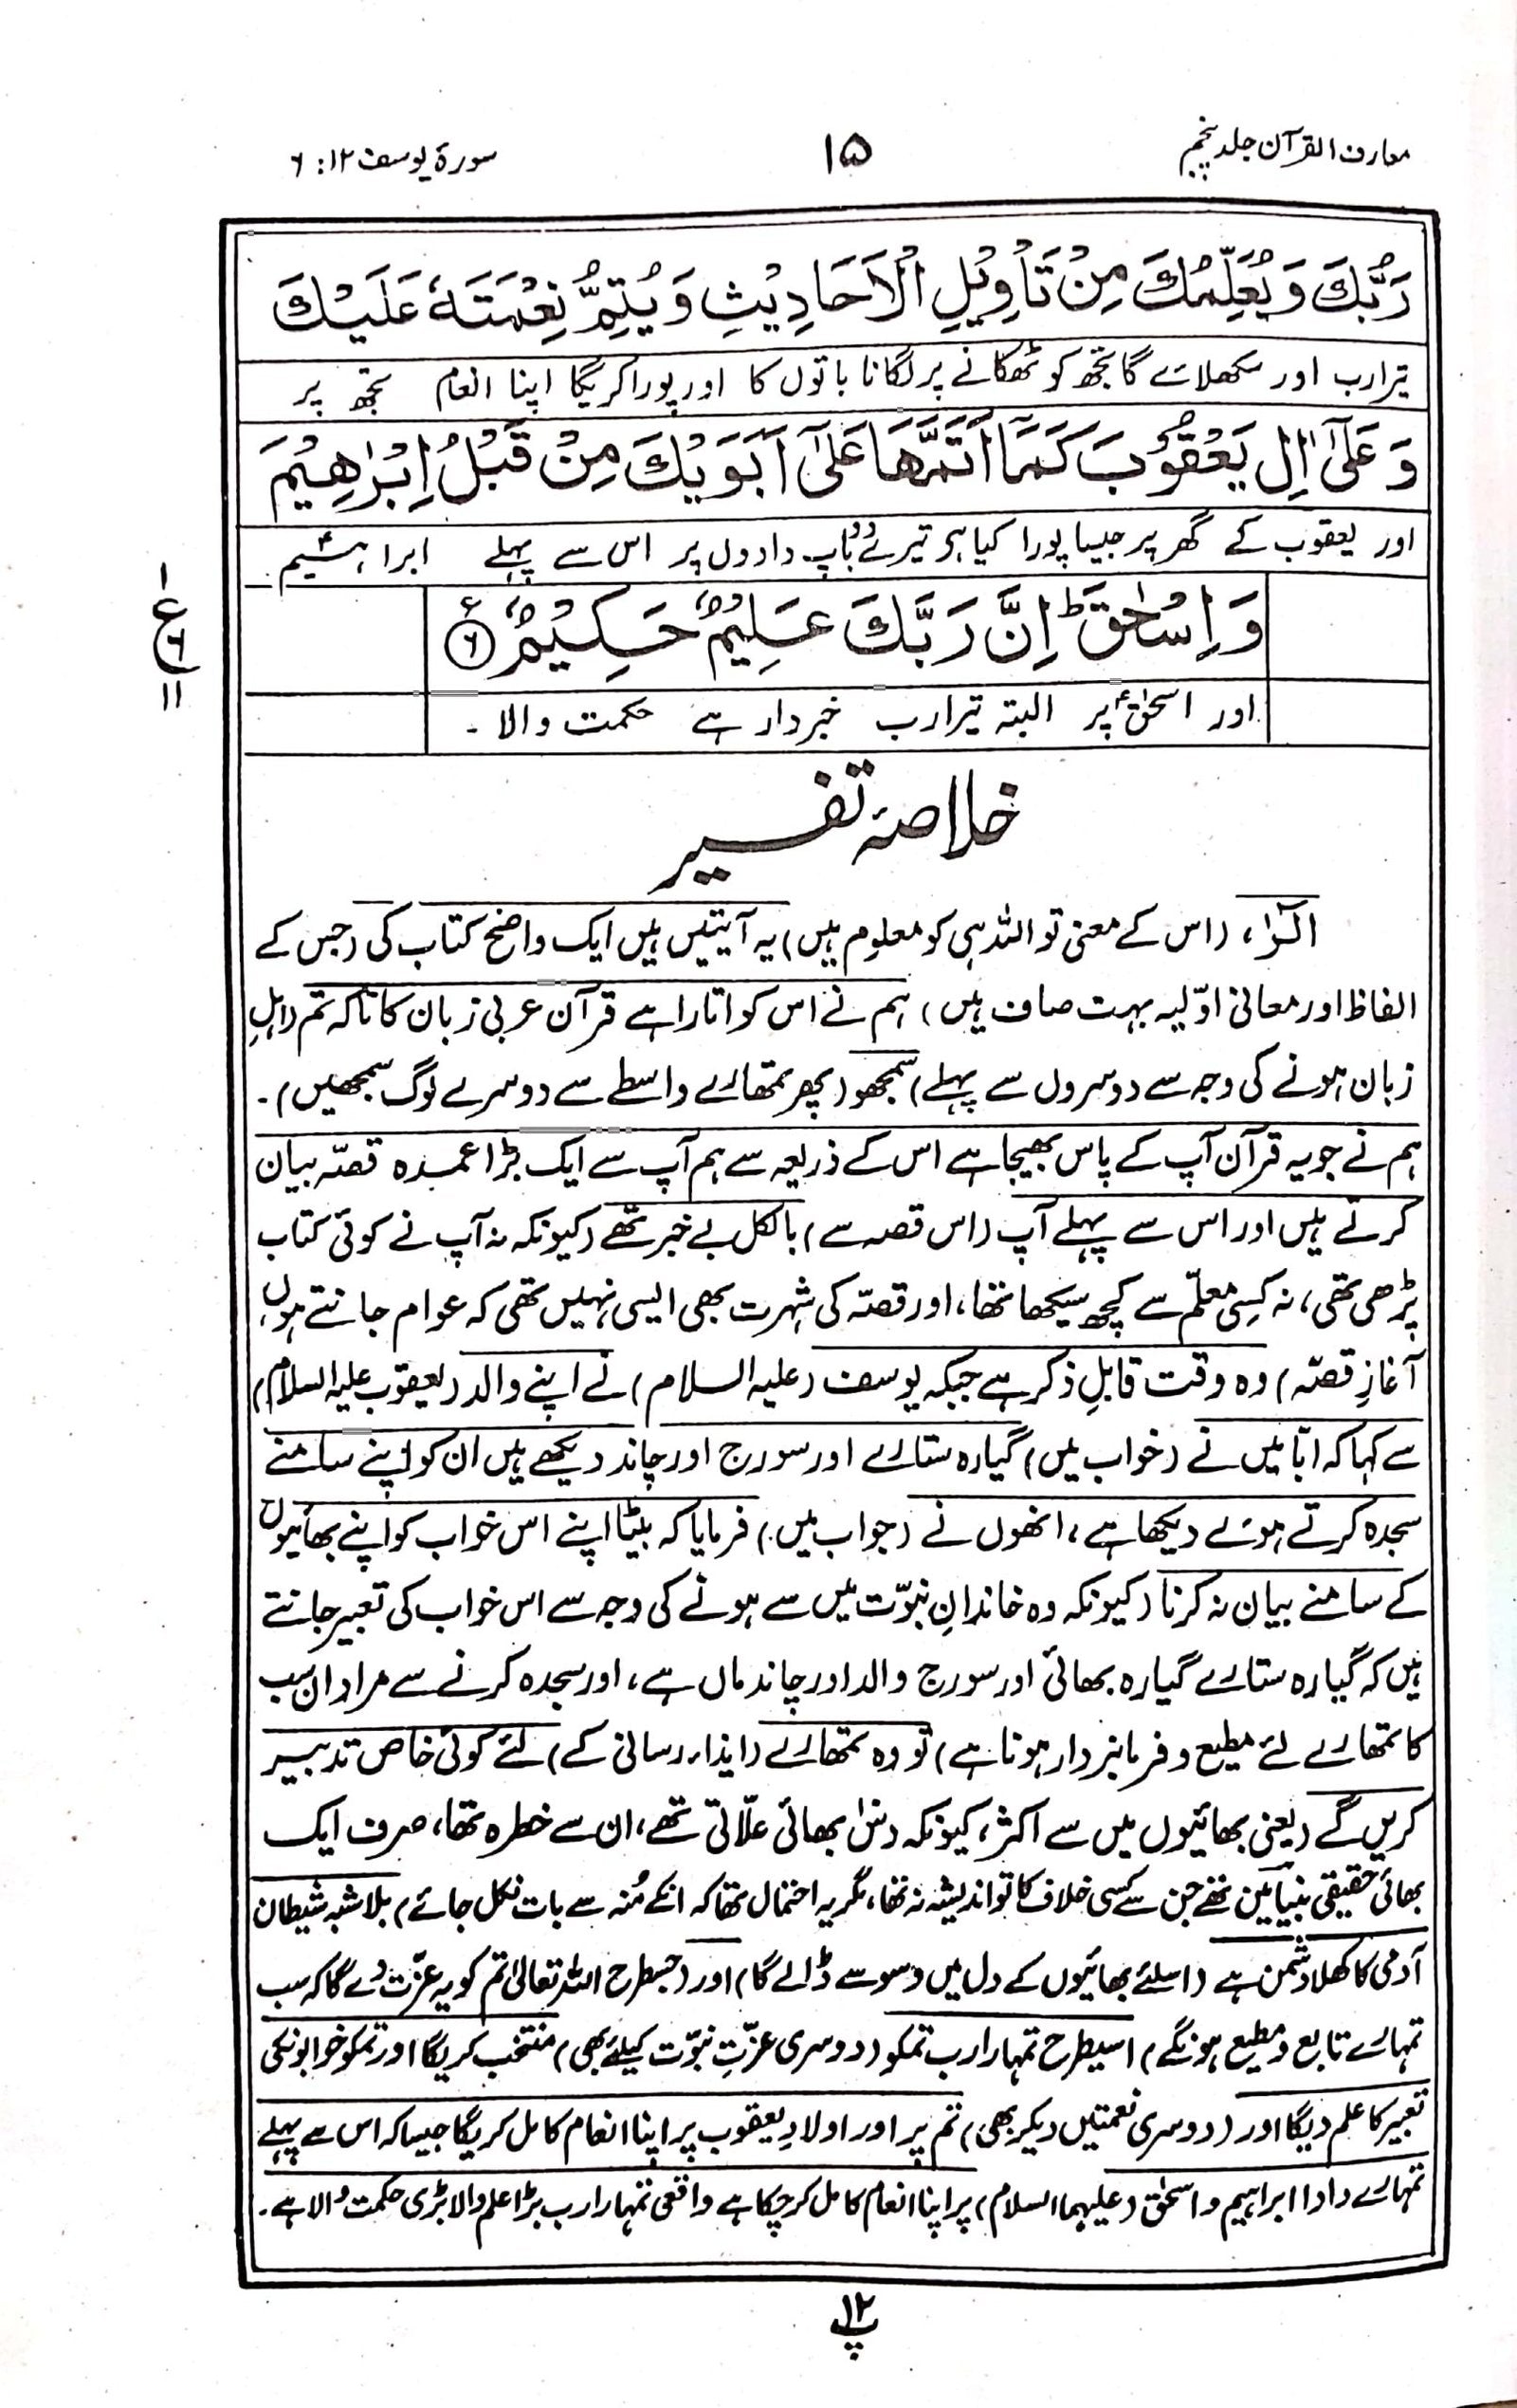 معارف القرآن جلد پنجم
۱۵
سورۃ یوسف ۱۲ : ۶
رَبُّكَ وَيُعَلِّمُكَ مِنْ تَاْوِيْلِ الْاَحَادِيْثِ وَيُتِمُّ نِعْمَتَهٗ عَلَيْكَ
تیرا رب اور سکھلائے گا تجھ کو ٹھکانے پر لگانا باتوں کا اور پورا کریگا اپنا انعام تجھ پر
وَعَلٰٓى اٰلِ يَعْقُوْبَ كَمَآ اَتَمَّهَا عَلٰٓى اَبَوَيْكَ مِنْ قَبْلُ اِبْرٰهِيْمَ
اور یعقوب کے گھر پر جیسا پورا کیا ہر تیرے دو باپ دادوں پر اس سے پہلے ابراہیم
وَاِسْحٰقَ ؕ اِنَّ رَبَّكَ عَلِيْمٌ حَكِيْمٌ ۶ ع
۱
ع
۶
۱۱
اور اسحٰقؑ پر البتہ تیرا رب خبردار ہے حکمت والا ۔
خلاصۂ تفسیر
الٓرٰ، (اس کے معنی تو اللہ ہی کو معلوم ہیں) یہ آیتیں ہیں ایک واضح کتاب کی (جس کے
الفاظ اور معانی اوّلیہ بہت صاف ہیں) ہم نے اس کو اتارا ہے قرآن عربی زبان کا تاکہ تم (اہلِ
زبان ہونے کی وجہ سے دوسروں سے پہلے) سمجھو (پھر تمھارے واسطے سے دوسرے لوگ سمجھیں) ۔
ہم نے جو یہ قرآن آپ کے پاس بھیجا ہے اس کے ذریعہ سے ہم آپ سے ایک بڑا عمدہ قصّہ بیان
کرتے ہیں اور اس سے پہلے آپ (اس قصہ سے) بالکل بے خبر تھے (کیونکہ نہ آپ نے کوئی کتاب
پڑھی تھی، نہ کسی معلّم سے کچھ سیکھا تھا، اور قصّہ کی شہرت بھی ایسی نہیں تھی کہ عوام جانتے ہوں،
آغازِ قصّہ) وہ وقت قابلِ ذکر ہے جبکہ یوسف (علیہ السلام) نے اپنے والد (یعقوب علیہ السلام)
سے کہا کہ ابّا میں نے (خواب میں) گیارہ ستارے اور سورج اور چاند دیکھے ہیں ان کو اپنے سامنے
سجدہ کرتے ہوئے دیکھا ہے، انھوں نے (جواب میں) فرمایا کہ بیٹا اپنے اس خواب کو اپنے بھائیوں
کے سامنے بیان نہ کرنا (کیونکہ وہ خاندانِ نبوّت میں سے ہونے کی وجہ سے اس خواب کی تعبیر جانتے
ہیں کہ گیارہ ستارے گیارہ بھائی اور سورج والد اور چاند ماں ہے، اور سجدہ کرنے سے مراد ان سب
کا تمھارے لئے مطیع و فرمانبردار ہونا ہے) تو وہ تمھارے (ایذاء رسانی کے) لئے کوئی خاص تدبیر
کریں گے (یعنی بھائیوں میں سے اکثر، کیونکہ دسؔ بھائی علّاتی تھے، ان سے خطرہ تھا، صرف ایک
بھائی حقیقی بنیامین تھے جن سے کسی خلاف کا تو اندیشہ نہ تھا، مگر یہ احتمال تھا کہ انکے مُنہ سے بات نکل جائے) بلاشبہ شیطان
آدمی کا کھلا دشمن ہے (اسلئے بھائیوں کے دل میں وسوسے ڈالے گا) اور (جسطرح اللہ تعالیٰ تم کو یہ عزّت دے گا کہ سب
تمہارے تابع و مطیع ہونگے) اسیطرح تمہارا رب تمکو (دوسری عزّتِ نبوّت کیلئے بھی) منتخب کریگا اور تمکو خوابونکی
تعبیر کا علم دیگا اور (دوسری نعمتیں دیکر بھی) تم پر اور اولادِ یعقوب پر اپنا انعام کامل کریگا جیسا کہ اس سے پہلے
تمہارے دادا ابراہیم و اسحٰق (علیہما السلام) پر اپنا انعام کامل کر چکا ہے واقعی تمہارا رب بڑا علم والا بڑی حکمت والا ہے ۔
پ ۱۲